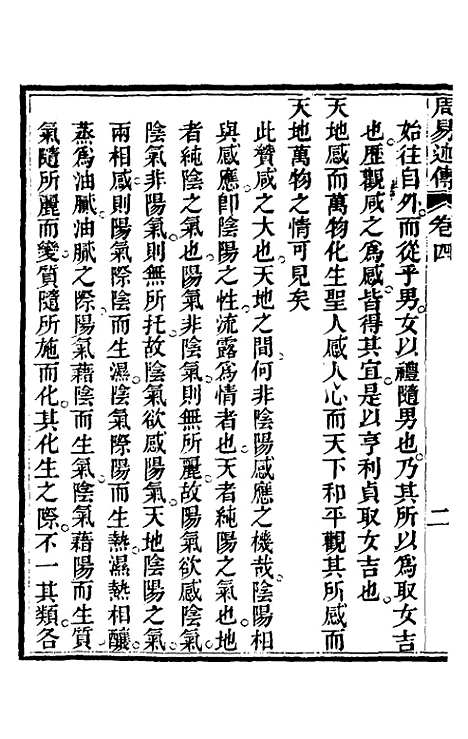 周易述傳 卷四 二
始往自外而從乎男女以禮隨男也乃其所以爲取女吉
也歷觀咸之爲感皆得其宜是以亨利貞取女吉也
天地感而萬物化生聖人感人心而天下和平觀其所感而
天地萬物之情可見矣
此贊咸之大也天地之間何非陰陽感應之機哉陰陽相
與感應卽陰陽之性流露爲情者也天者純陽之氣也地
者純陰之氣也陽氣非陰氣則無所麗故陽氣欲感陰氣
陰氣非陽氣則無所托故陰氣欲感陽氣天地陰陽之氣
兩相感則陽氣際陰而生濕陰氣際陽而生熱濕熱相釀
蒸爲油膩油膩之際陽氣藉陰而生氣陰氣藉陽而生質
氣隨所麗而變質隨所施而化其化生之際不一其類各